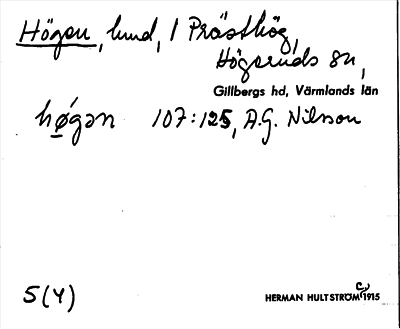 Högen, lund, 1 Prästhög,
Högeruds sn,
Gillbergs hd, Värmlands län
hǿgən 107:125, A.G. Nilsson
5(4)
HERMAN HULTSTRÖM c. 1915